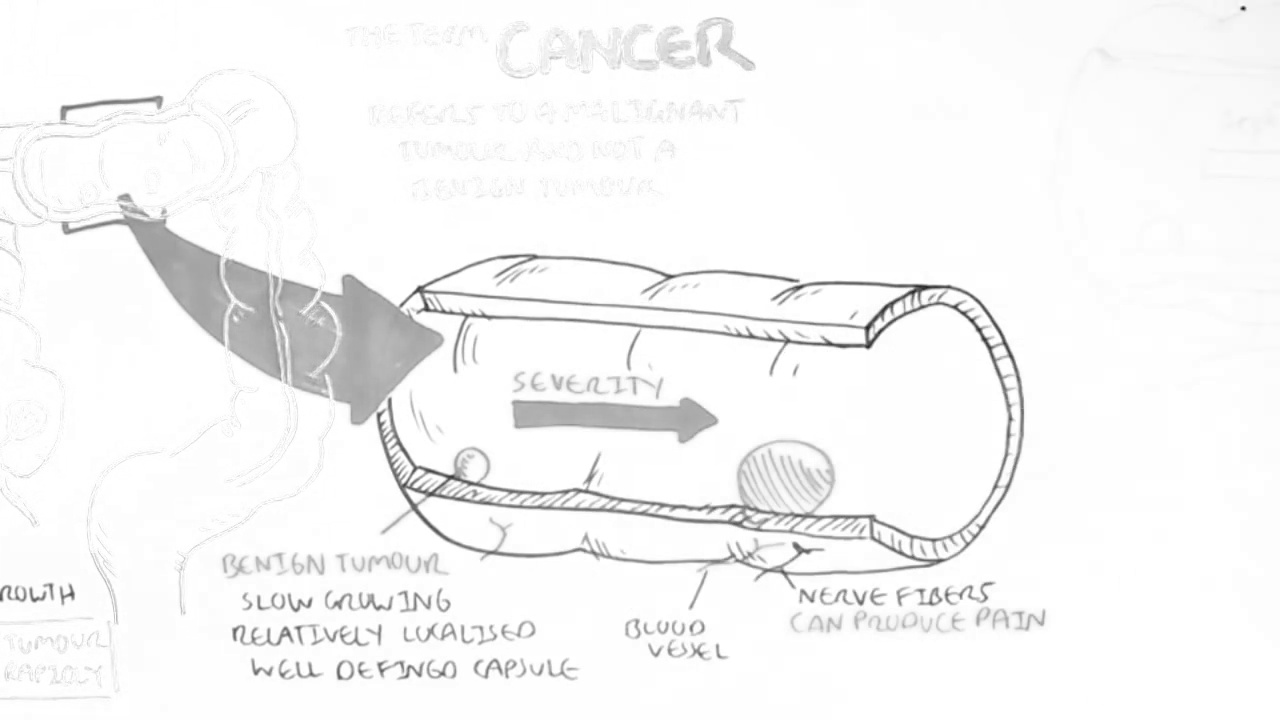 THE TERM CANCER
REFERS TO A MALIGNANT
TUMOUR AND NOT A
BENIGN TUMOUR
SEVERITY
BENIGN TUMOUR
SLOW GROWING
RELATIVELY LOCALISED
WELL DEFINGD CAPSULE
BLOOD
VESSEL
NERVE FIBERS
CAN PRODUCE PAIN
ROWTH
TUMOUR
RAPIDLY